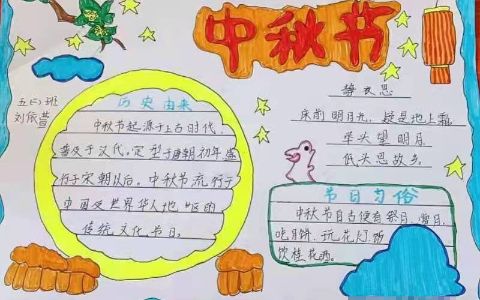 中秋节
五(二)班
刘依萱
历史由来
中秋节起源于上古时代,
普及于汉代。定型于唐朝初年,盛
行于宋朝以后。中秋节流行于
中国及世界华人地区的
传统文化节日。
静夜思
床前明月光,疑是地上霜
举头望明月
低头思故乡
节日习俗
中秋节自古便有祭月、赏月、
吃月饼、玩花灯、
饮桂花酒。